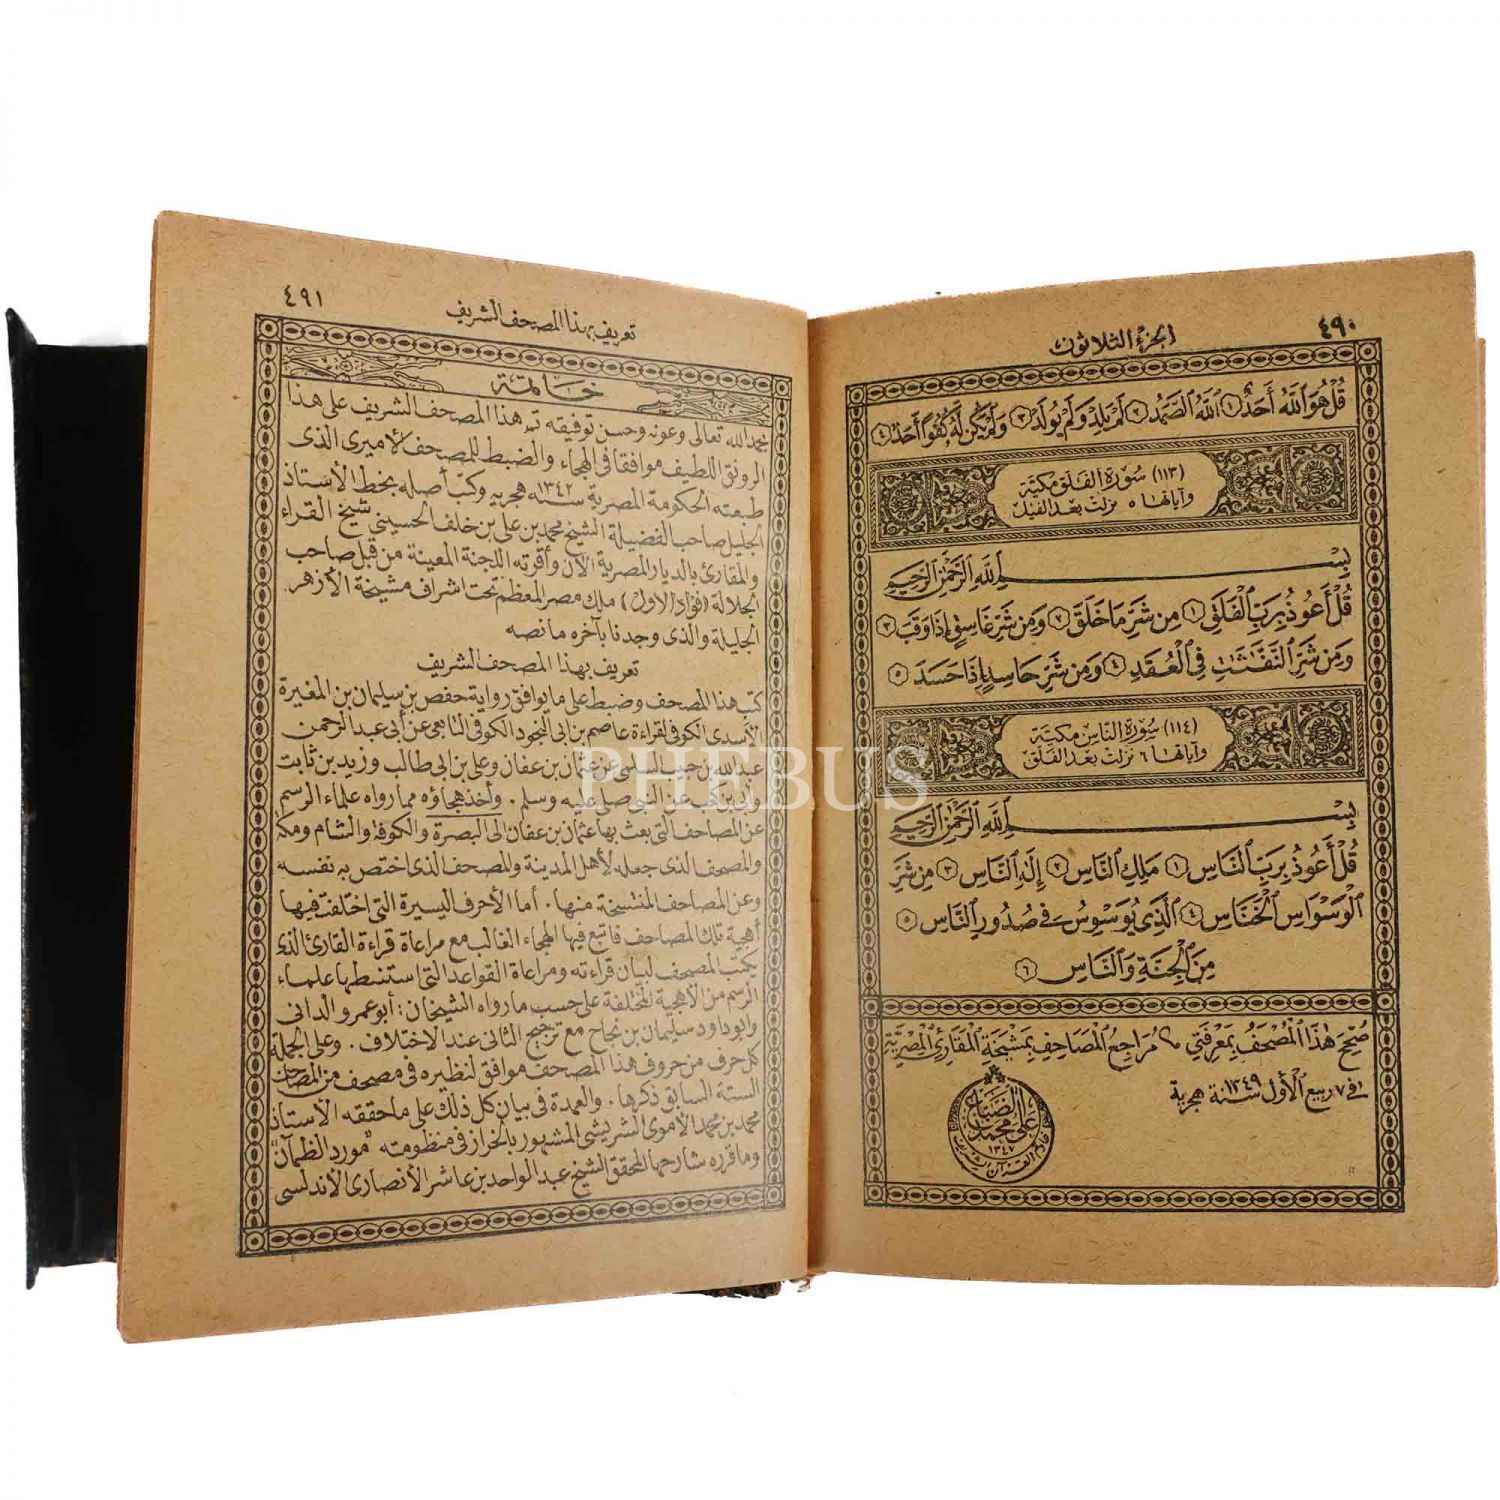 ٤٩٠
الجزء الثلاثون
قُلْ هُوَ ٱللَّهُ أَحَدٌ ١ ٱللَّهُ ٱلصَّمَدُ ٢ لَمْ يَلِدْ وَلَمْ يُولَدْ ٣ وَلَمْ يَكُن لَّهُۥ كُفُوًا أَحَدٌۢ ٤
(١١٣) سُورَة الفَلَق مكيّة
وآياتها ٥ نزلت بعد الفيل
بِسْمِ ٱللَّهِ ٱلرَّحْمَٰنِ ٱلرَّحِيمِ
قُلْ أَعُوذُ بِرَبِّ ٱلْفَلَقِ ١ مِن شَرِّ مَا خَلَقَ ٢ وَمِن شَرِّ غَاسِقٍ إِذَا وَقَبَ ٣
وَمِن شَرِّ ٱلنَّفَّٰثَٰتِ فِى ٱلْعُقَدِ ٤ وَمِن شَرِّ حَاسِدٍ إِذَا حَسَدَ ٥
(١١٤) سُورَة النَّاس مكيّة
وآياتها ٦ نزلت بعد الفلق
بِسْمِ ٱللَّهِ ٱلرَّحْمَٰنِ ٱلرَّحِيمِ
قُلْ أَعُوذُ بِرَبِّ ٱلنَّاسِ ١ مَلِكِ ٱلنَّاسِ ٢ إِلَٰهِ ٱلنَّاسِ ٣ مِن شَرِّ
ٱلْوَسْوَاسِ ٱلْخَنَّاسِ ٤ ٱلَّذِى يُوَسْوِسُ فِى صُدُورِ ٱلنَّاسِ ٥
مِنَ ٱلْجِنَّةِ وَٱلنَّاسِ ٦
صُحِّحَ هٰذَا ٱلْمُصْحَفُ بِمَعْرِفَتِي مُرَاجِعُ ٱلْمَصَاحِفِ بِمَشْيَخَةِ ٱلْمَقَارِئِ ٱلْمِصْرِيَّةِ
فى ٧ ربيع الأول سنة ١٣٤٩ هجرية
على محمد الضباع
١٣٤٧
خادم القرآن الشريف
٤٩١
تعريف بهذا المصحف الشريف
خاتمة
بحمد الله تعالى وعونه وحسن توفيقه تم هذا المصحف الشريف على هذا
الرونق اللطيف موافقا فى الهجاء والضبط للمصحف الأميرى الذى
طبعته الحكومة المصرية سنة ١٣٤٢ هجرية وكتب أصله بخط الأستاذ
الجليل صاحب الفضيلة الشيخ محمد بن على بن خلف الحسينى شيخ القراء
والمقارئ بالديار المصرية الآن وأقرته اللجنة المعينة من قبل صاحب
الجلالة (فؤاد الأول) ملك مصر المعظم تحت اشراف مشيخة الأزهر
الجليلة والذى وجدنا بآخره ما نصه
تعريف بهذا المصحف الشريف
كتب هذا المصحف وضبط على ما يوافق رواية حفص بن سليمان بن المغيرة
الأسدى الكوفى لقراءة عاصم بن أبى النجود الكوفى التابعى عن أبى عبد الرحمن
عبد الله بن حبيب السلمى عن عثمان بن عفان وعلى بن أبى طالب وزيد بن ثابت
وأبى بن كعب عن النبى صلى الله عليه وسلم . وأخذ هجاؤه مما رواه علماء الرسم
عن المصاحف التى بعث بها عثمان بن عفان الى البصرة والكوفة والشام ومكة
والمصحف الذى جعله لأهل المدينة والمصحف الذى اختص به نفسه
وعن المصاحف المنتسخة منها . أما الأحرف اليسيرة التى اختلفت فيها
أهجية تلك المصاحف فاتبع فيها الهجاء الغالب مع مراعاة قراءة القارئ الذى
يكتب المصحف لبيان قراءته ومراعاة القواعد التى استنبطها علماء
الرسم من الأهجية المختلفة على حسب ما رواه الشيخان: أبو عمرو الدانى
وأبو داود سليمان بن نجاح مع ترجيح الثانى عند الاختلاف . وعلى الجملة
كل حرف من حروف هذا المصحف موافق لنظيره فى مصحف من المصاحف
الستة السابق ذكرها . والعمدة فى بيان كل ذلك على ما حققه الأستاذ
محمد بن محمد الأموى الشريشى المشهور بالخراز فى منظومته "مورد الظمآن"
وما قرره شارحها المحقق الشيخ عبد الواحد بن عاشر الأنصارى الأندلسى
PHEBUS